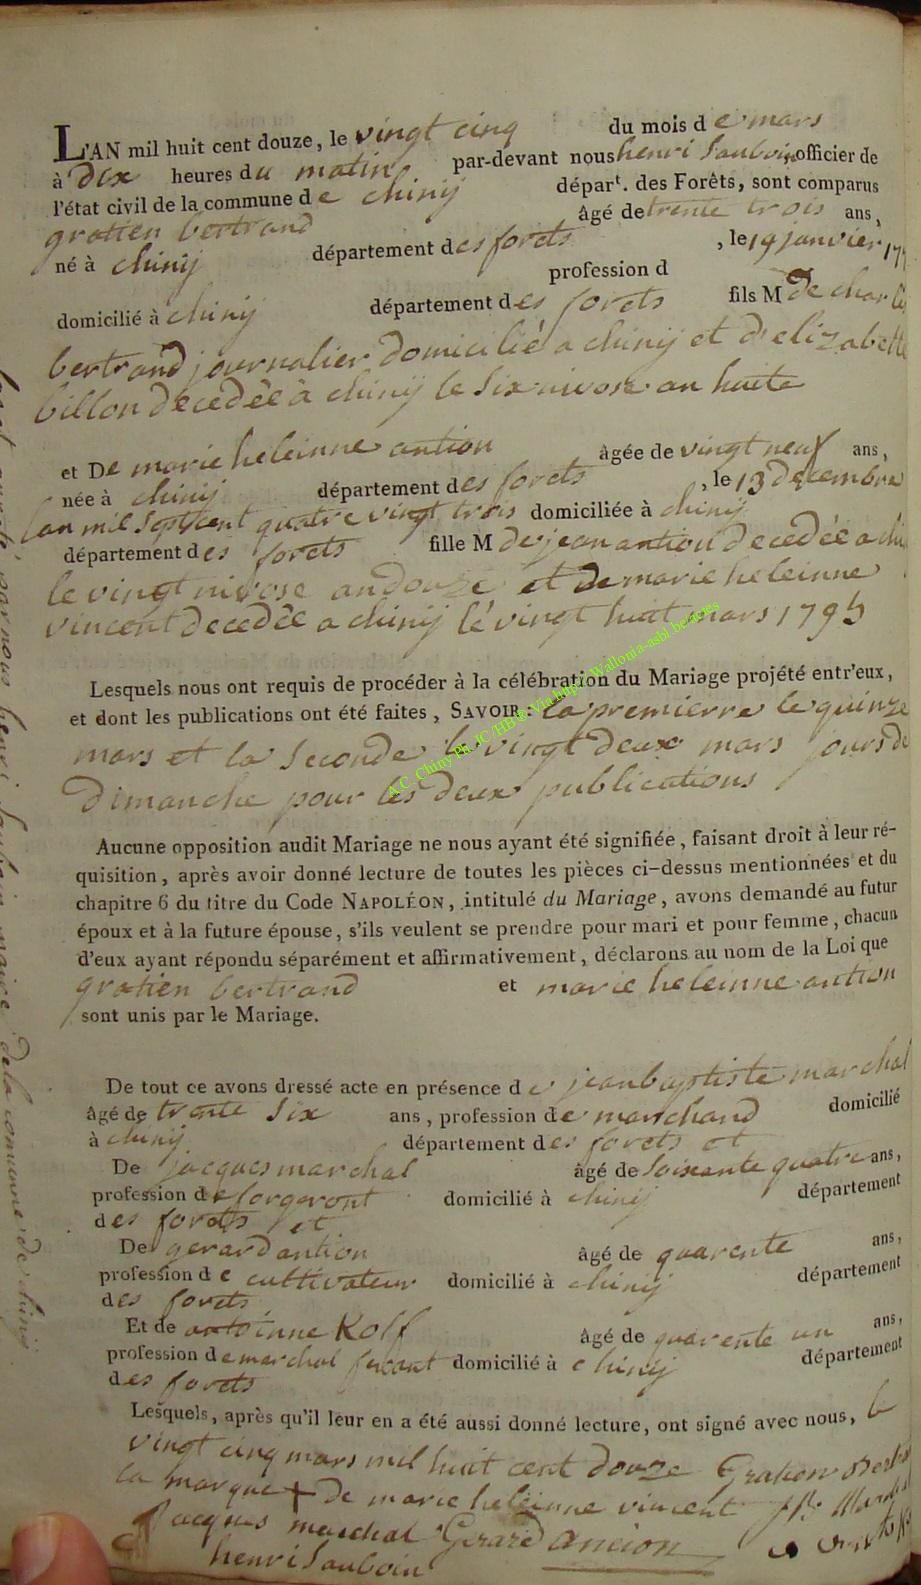 L'AN mil huit cent douze, le vingt cinq du mois de mars
à dix heures du matin par-devant nous henri Sauboin officier de
l'état civil de la commune de chinij départ. des Forêts, sont comparus
gratien bertrand âgé de trente trois ans,
né à chinij département des forets, le 19 janvier 17
profession d
domicilié à chinij département des forets fils M de charles
bertrand journalier domicilié a chinij et d'elizabette
billon decedéé à chinij le Six nivose an huite
et De marie heleinne antion âgée de vingt neuf ans,
née à chinij département des forets, le 13 decembre
lan mil Septcent quatre vingt trois domiciliée à chinij
département des forets fille M de jean antion decedée a chi
le vingt nivose an douze et de marie heleinne
vincent decedée a chinij lé vingt huit mars 1795
Lesquels nous ont requis de procéder à la célébration du Mariage projété entr'eux,
et dont les publications ont été faites, SAVOIR: la premierre le quinze
mars et la Seconde le vingt deux mars jours de
Dimanche pour les deux publications
A.C. Chiny Ph. JC/HB® Via http://Wallonia-asbl.be/actes
Aucune opposition audit Mariage ne nous ayant été signifiée, faisant droit à leur ré-
quisition, après avoir donné lecture de toutes les pièces ci-dessus mentionnées et du
chapitre 6 du titre du Code NAPOLÉON, intitulé du Mariage, avons demandé au futur
époux et à la future épouse, s'ils veulent se prendre pour mari et pour femme, chacun
d'eux ayant répondu séparément et affirmativement, déclarons au nom de la Loi que
gratien bertrand et marie heleinne antion
sont unis par le Mariage.
De tout ce avons dressé acte en présence de jeanbaptiste marchal
âgé de trente Six ans, profession de marchand domicilié
à chinij département des forets et
De jacques marchal âgé de Soixante quatre ans,
profession de forgeront domicilié à chinij département
des forets et
De gerard antion âgé de quarente ans,
profession de cultivateur domicilié à chinij département
des forets
Et de antoinne Kolf âgé de quarente un ans,
profession de marchal domicilié à chinij département
des forets
Lesquels, après qu'il leur en a été aussi donné lecture, ont signé avec nous, le
vingt cinq mars mil huit cent douze Gratien
la marque + de marie heleinne vincent JB
Jacques marchal Gerard ancion
henri Sauboin
par nous henri Sauboin maire de la commune de chinij